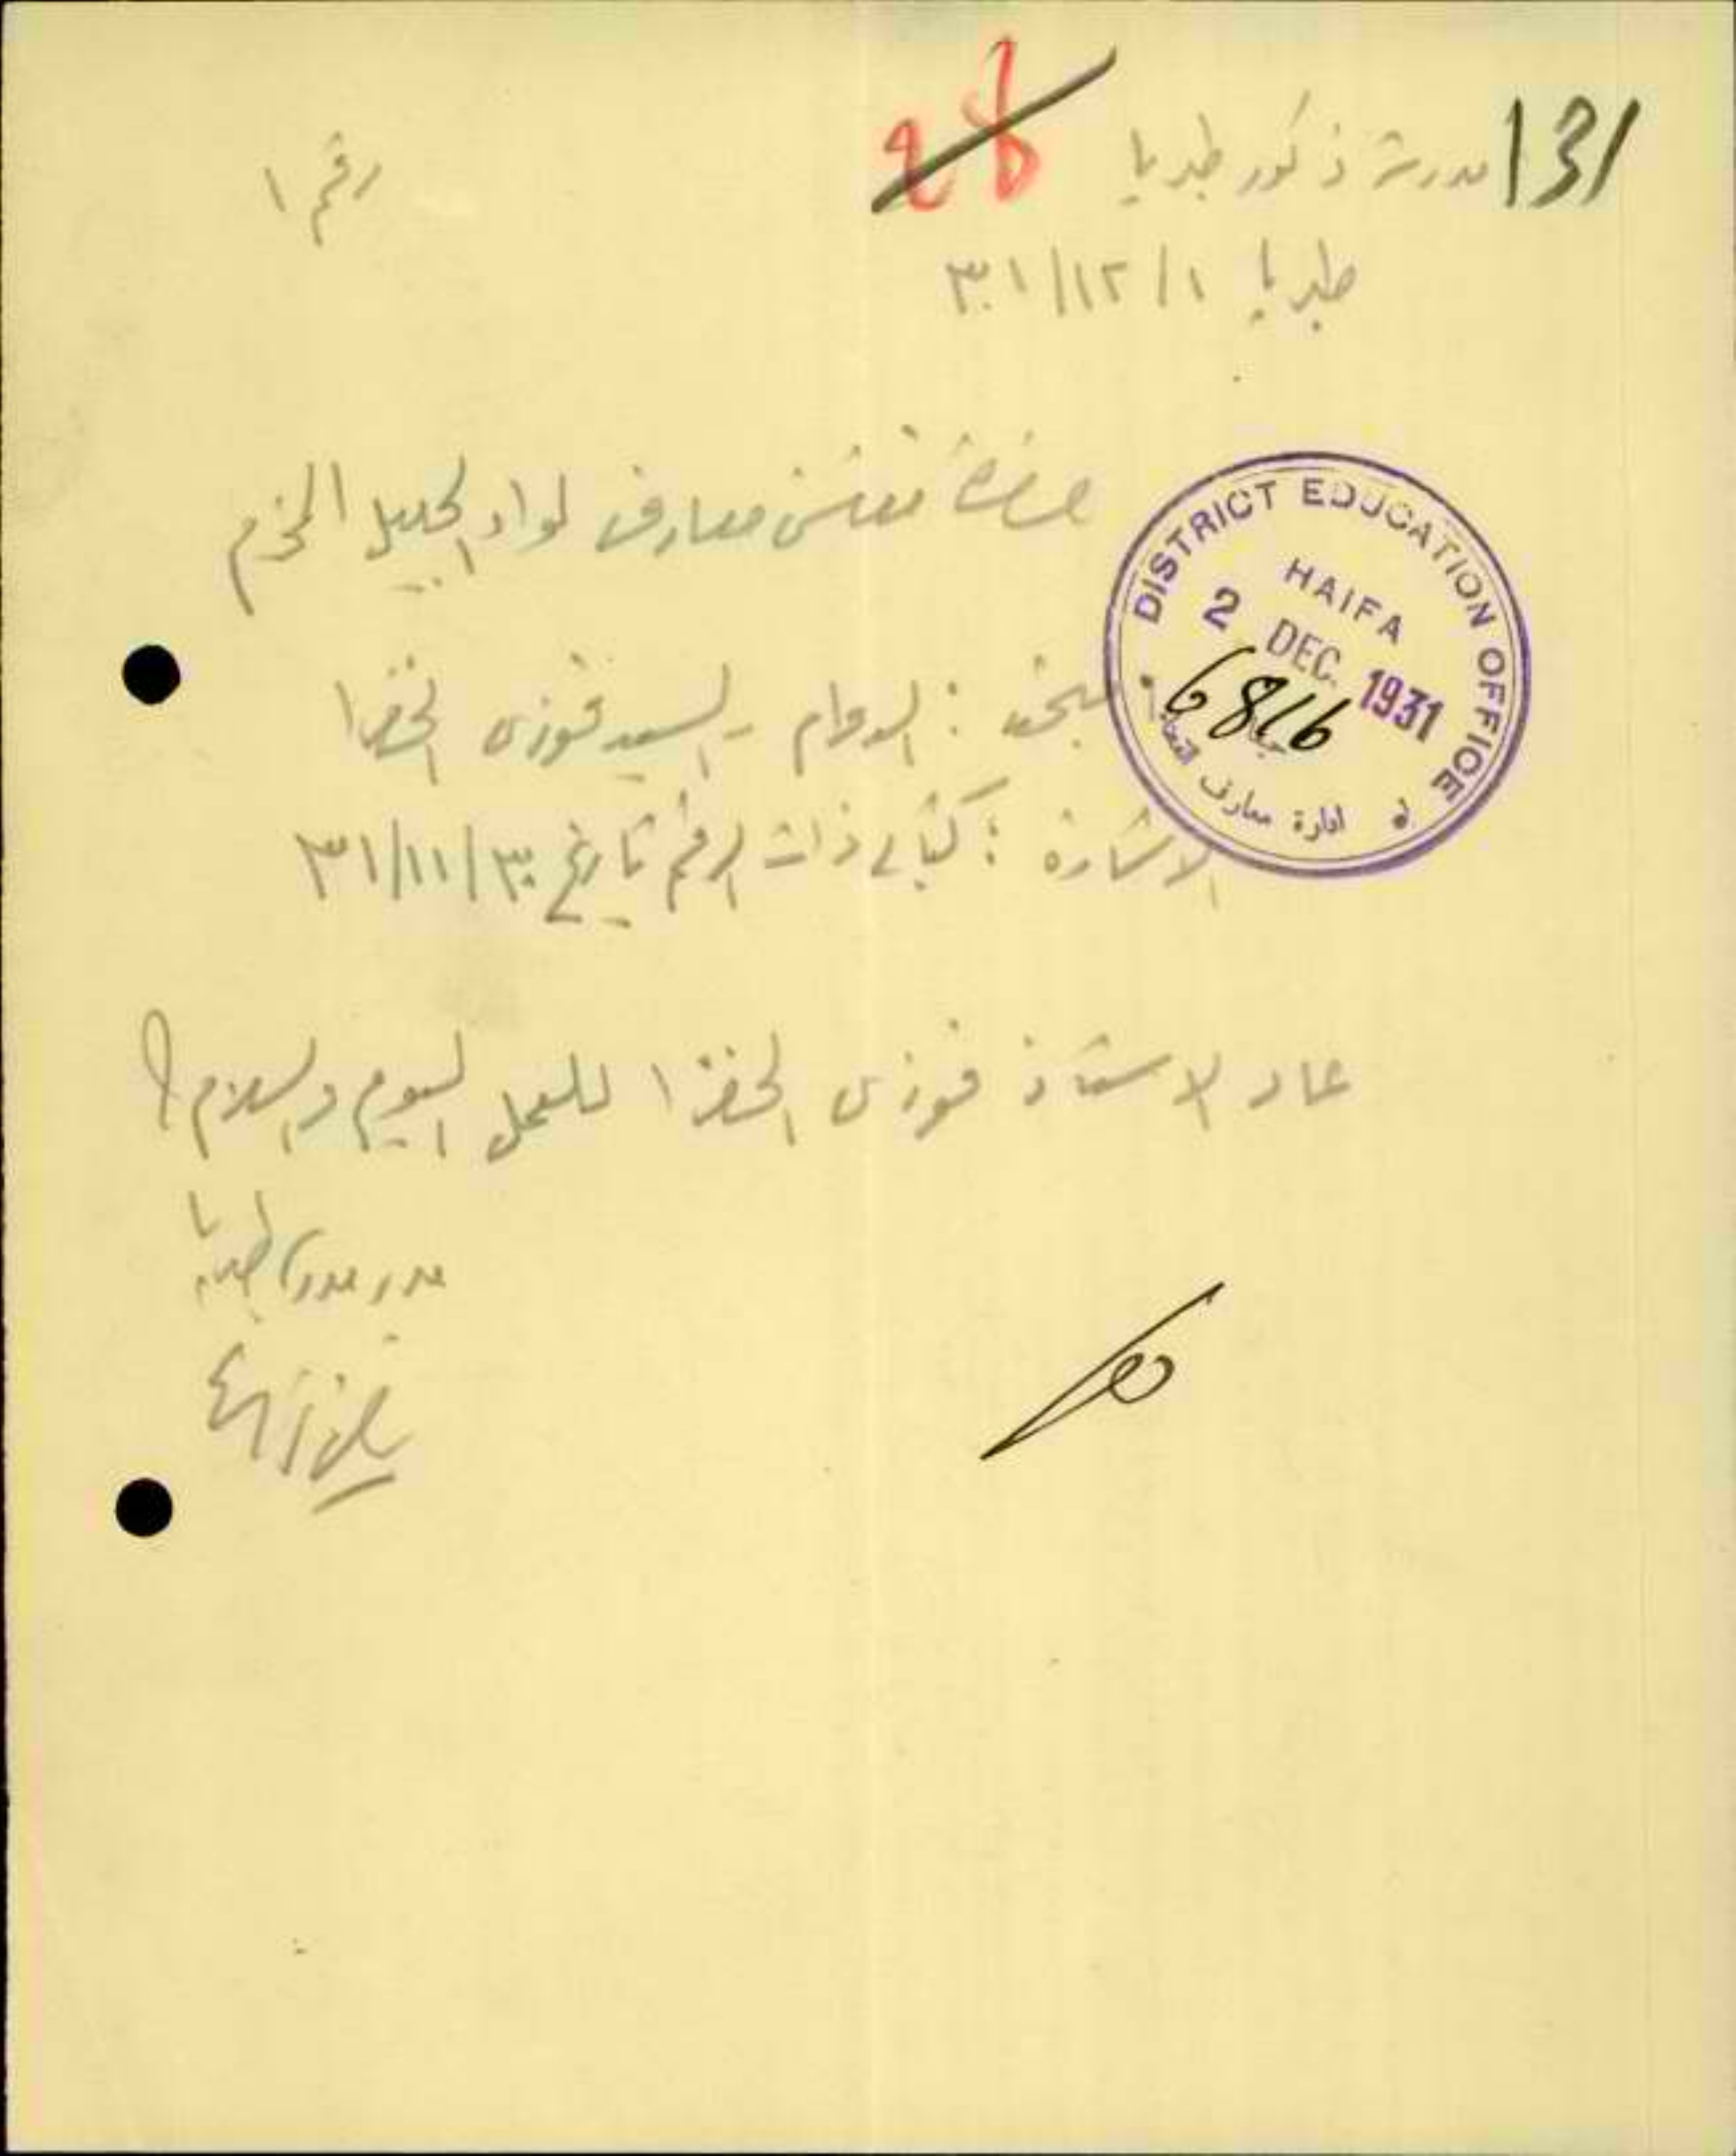 131
مدرسة ذكور طبريا
رقم ١
طبريا ١/١٢/٣١
حضرة مفتش معارف لواء الجليل المحترم
DISTRICT EDUCATION OFFICE
HAIFA
2 DEC. 1931
6816
ادارة معارف
مبحث : الدوام - السيد فوزي الخضرا
الاشارة : كتابي ذات الرقم تاريخ ٣٠/١١/٣١
عاد الاستاذ فوزي الخضرا للعمل اليوم والسلام
مدير مدرسة طبريا